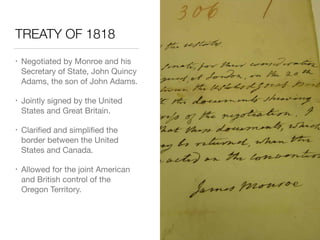 TREATY OF 1818
• Negotiated by Monroe and his
Secretary of State, John Quincy
Adams, the son of John Adams.
• Jointly signed by the United
States and Great Britain.
• Clarified and simplified the
border between the United
States and Canada.
• Allowed for the joint American
and British control of the
Oregon Territory.
306
the United States
Senate, for their consideration
at London, on the 20th
the United States & Great
the documents shewing
of the negotiation. I
that these documents, which
may be returned, when the
acted on the convention
James Monroe